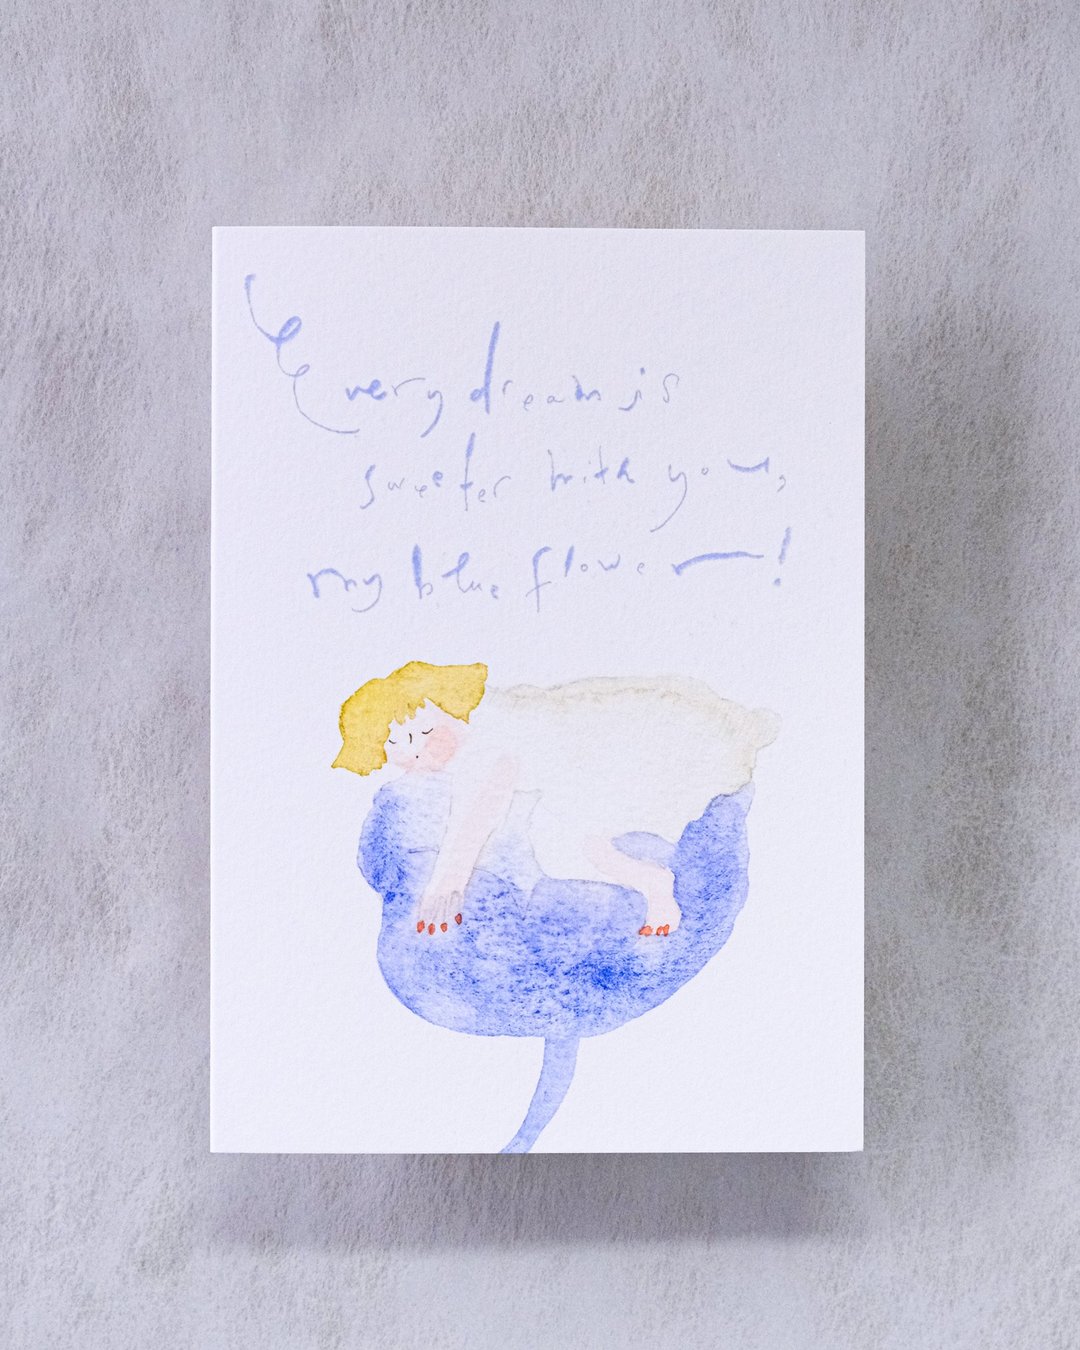 Every dream is
sweeter with you,
my blue flower!